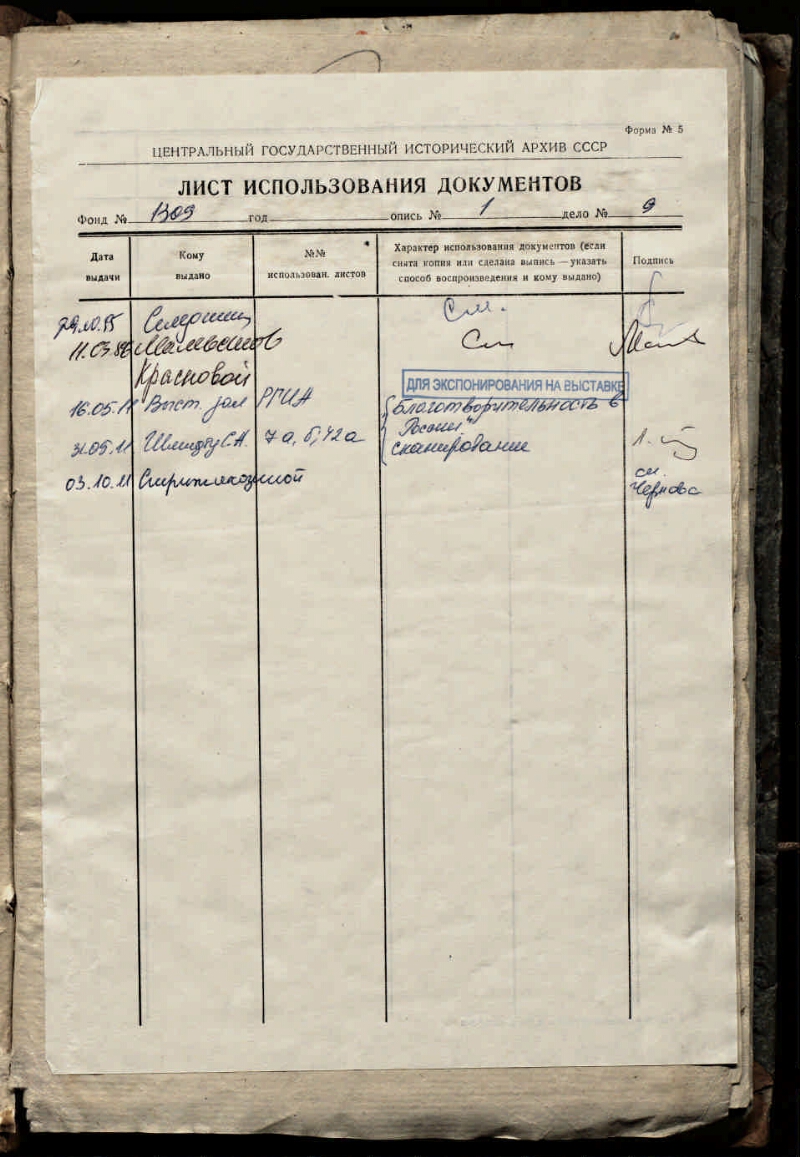 Форма № 5
ЦЕНТРАЛЬНЫЙ ГОСУДАРСТВЕННЫЙ ИСТОРИЧЕСКИЙ АРХИВ СССР
ЛИСТ ИСПОЛЬЗОВАНИЯ ДОКУМЕНТОВ
Фонд № 1309 год опись № 1 дело № 9
Дата выдачи
Кому выдано
№№ использован. листов
Характер использования документов (если снята копия или сделана выпись — указать способ воспроизведения и кому выдано)
Подпись
См.
11.03.86 См
Красновой
ДЛЯ ЭКСПОНИРОВАНИЯ НА ВЫСТАВКЕ
16.05.11 Выст. зал РГИА Благотворительность в
России"
31.05.11 С.А. 7а, б, 42а сканирование
03.10.11 см.
Чернова